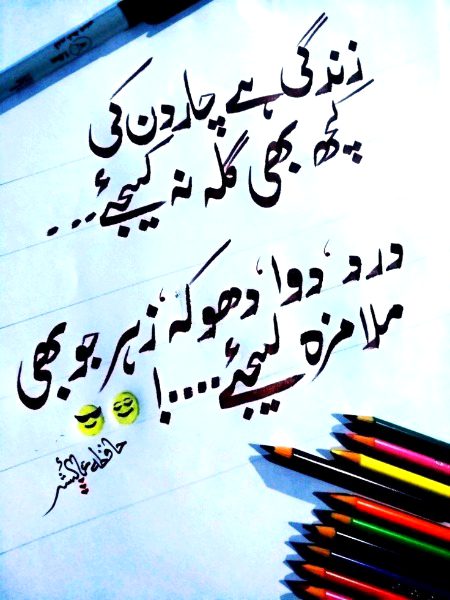 زندگی ہے چار دن کی
کچھ بھی گلہ نہ کیجئے...
درد، دوا، دھوکہ، زہر جو بھی
ملا مزہ لیجئے....!